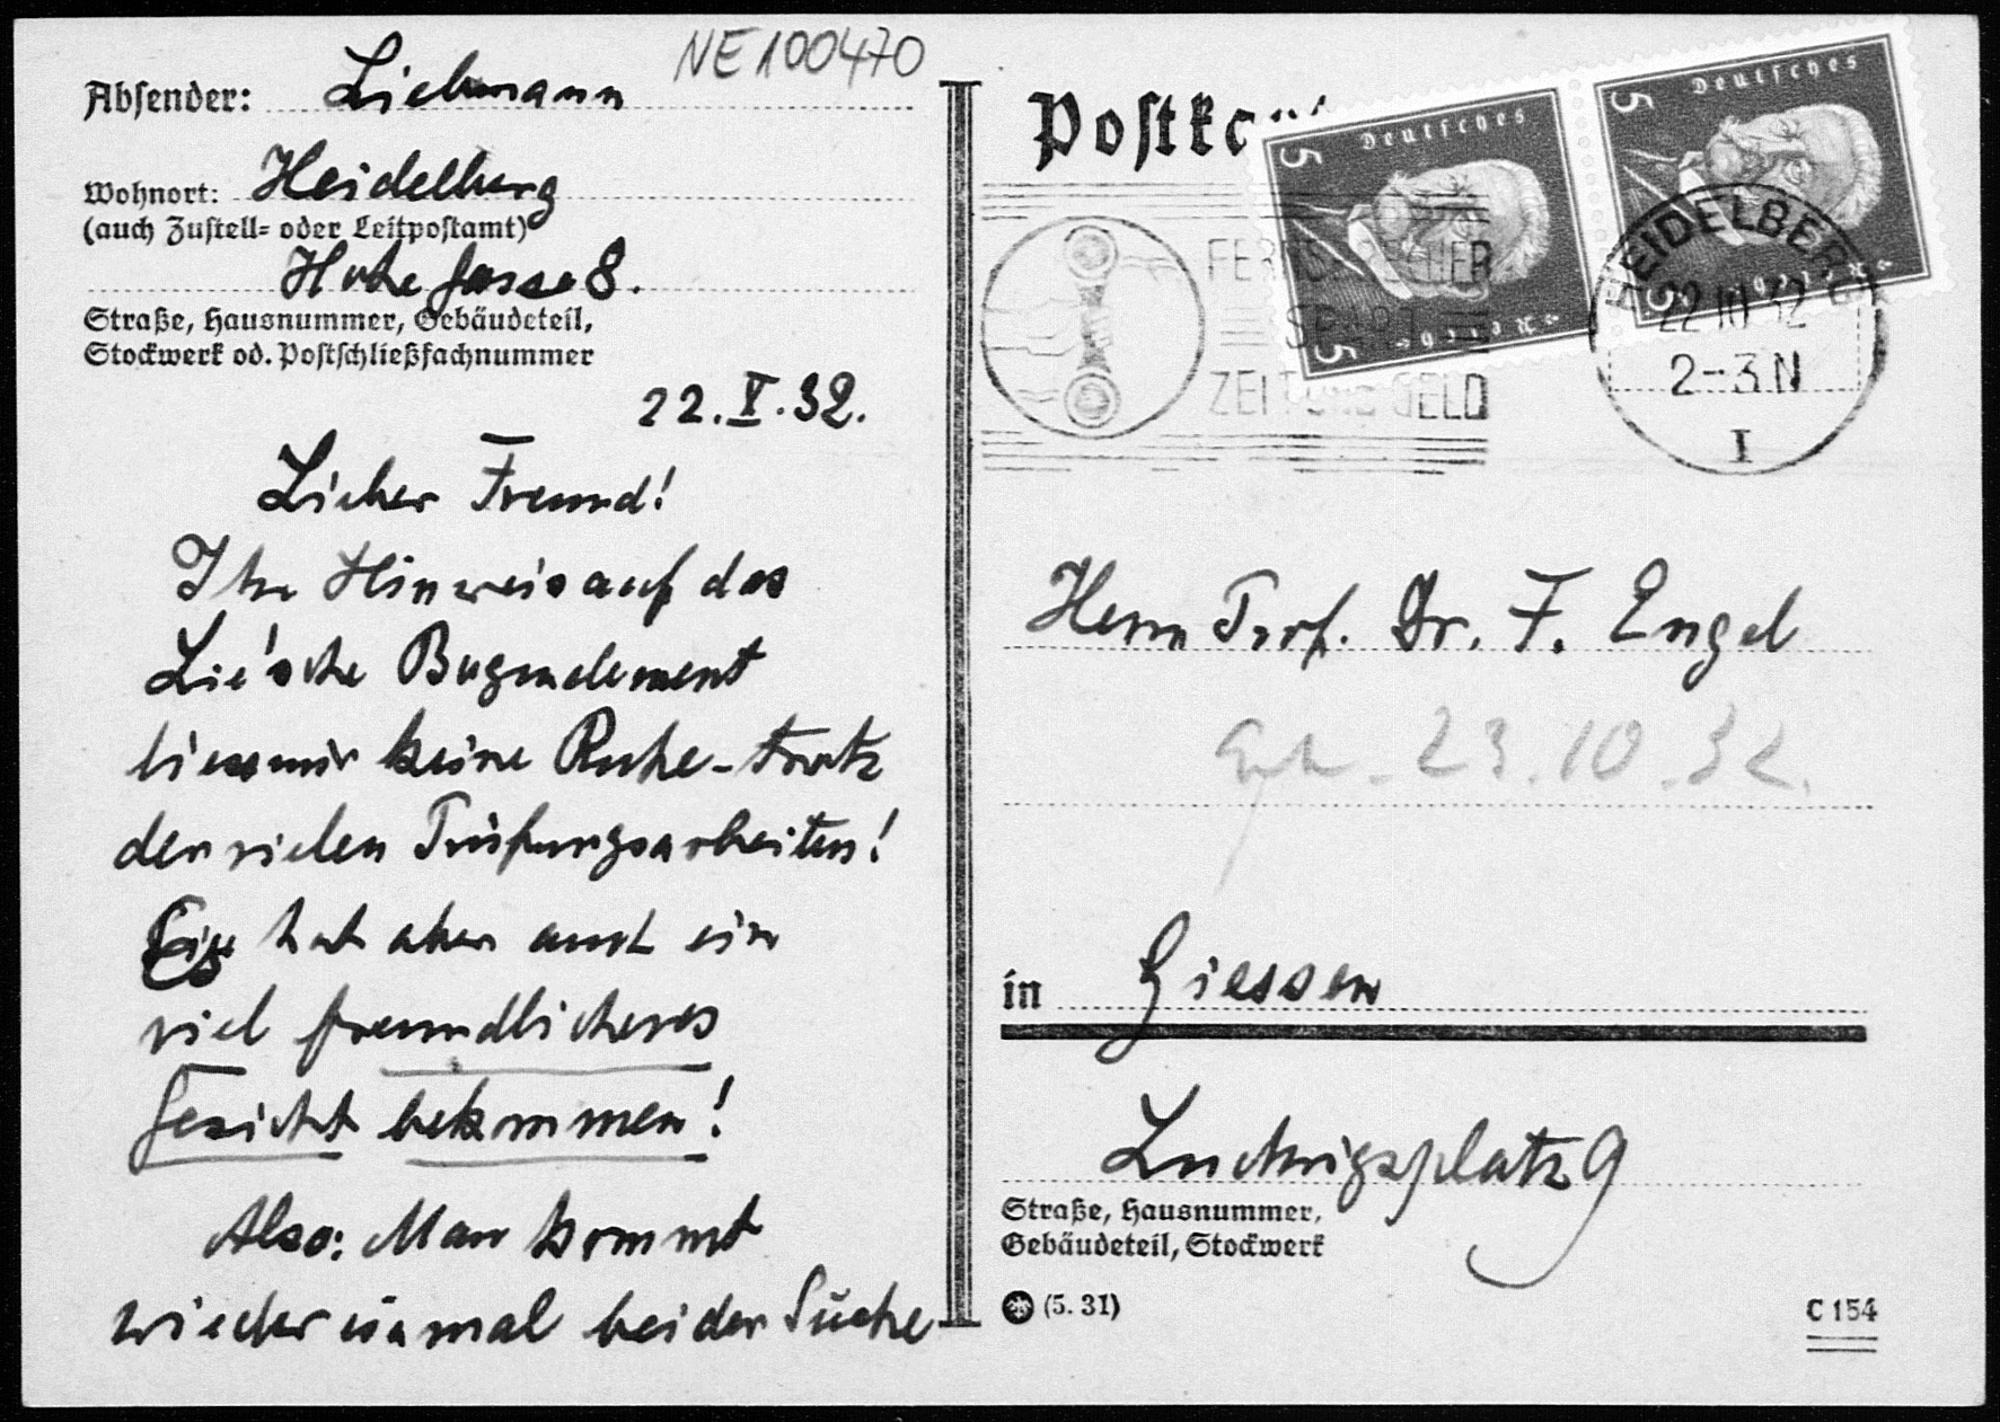 NE100470
Absender: Liebmann
Wohnort: Heidelberg
(auch Zustell= oder Leitpostamt)
Hohe Gasse 8.
Straße, Hausnummer, Gebäudeteil,
Stockwerk od. Postschließfachnummer
22.X.32.
Lieber Freund!
Ihr Hinweis auf das
Lie'sche Bogenelement
liess mir keine Ruhe - trotz
der vielen Prüfungsarbeiten!
Es hat aber auch ein
viel freundlicheres
Gesicht bekommen!
Also: Man kommt
wieder einmal bei der Suche
Postkar
Deutsches
5
5
Reich
Deutsches
5
5
Reich
FERNSPRECHER
SPART
ZEIT UND GELD
HEIDELBERG
22.10.32
2-3 N
1
Herrn Prof. Dr. F. Engel
23.10.32.
in Giessen
Ludwigsplatz 9
Straße, Hausnummer,
Gebäudeteil, Stockwerk
(5. 31)
C 154